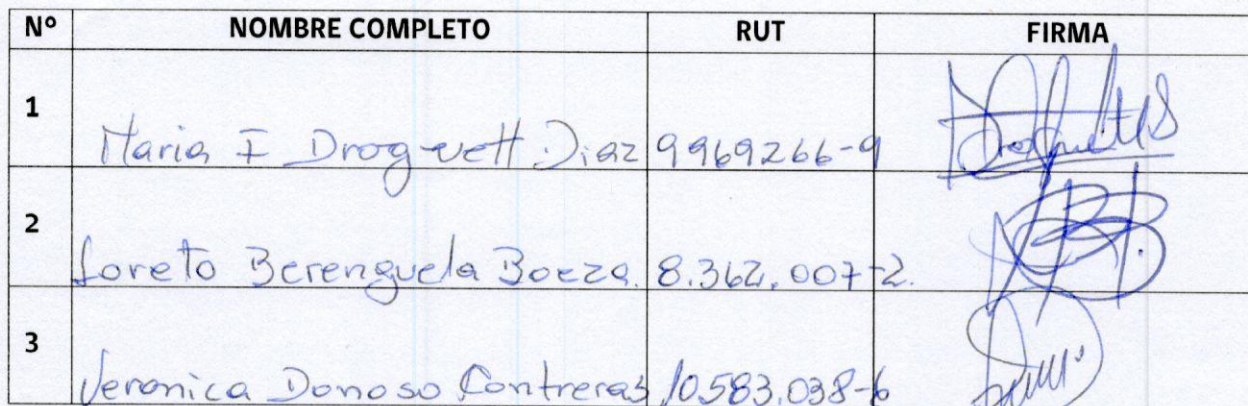 Nº NOMBRE COMPLETO RUT FIRMA
1 Maria I Droguett Diaz 9969266-9
2 Loreto Berenguela Boeza. 8.362.007-2.
3 Veronica Donoso Contreras 10.583.038-6